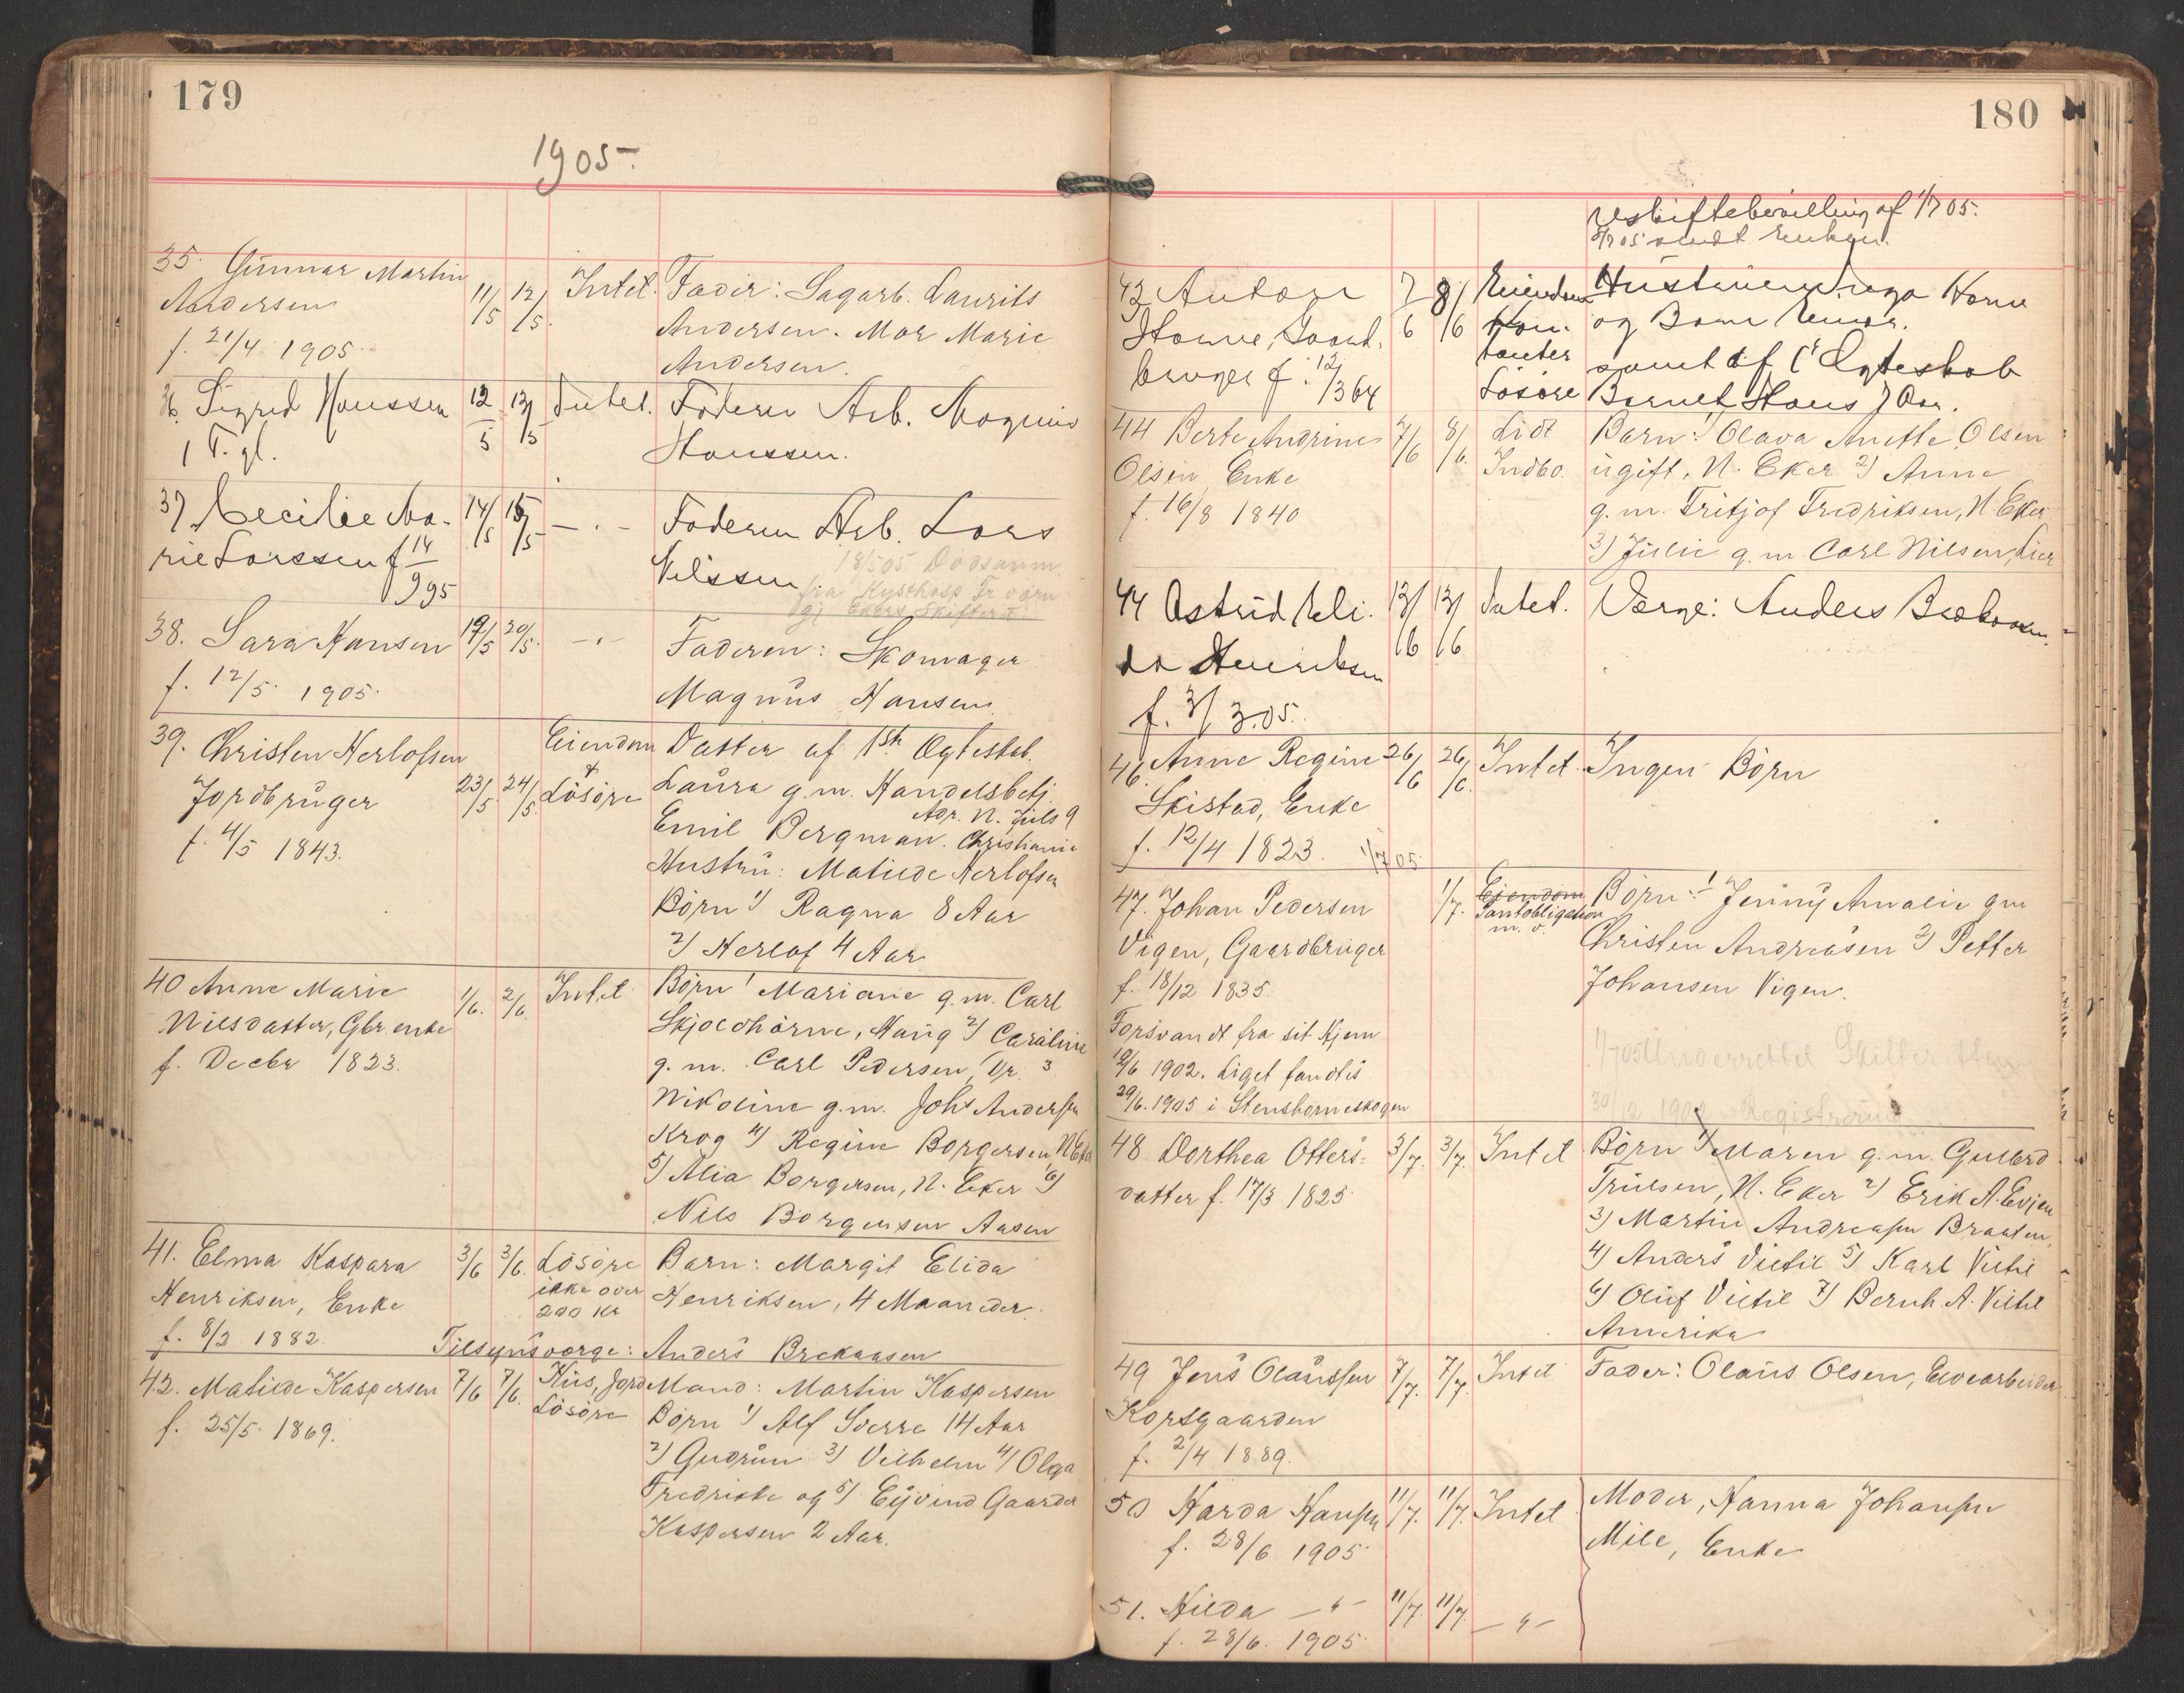 179
1905-
35. Gunnar Martin
Andersen
f. 21/4 1905.
11/5 12/5.
Intet.
Fader: Sagarb. Laurits
Andersen. Mor Marie
Andersen.
36. Sigrid Hanssen
1 T. gl.
12/5 13/5
Intet.
Faderen Arb. Magnus
Hanssen.
37 Cecilie Ma-
rie Larssen f 14/9 95
14/5 15/5
— " —
Faderen Arb. Lars
Nilssen
18/5 05 Dødsanm.
fra Kysthosp. Fr. værn
38. Sara Hansen
f. 12/5. 1905.
19/5 20/5.
— " —
Faderen: Skomager
Magnus Hansen.
39. Christen Herlofsen
Jordbruger
f. 4/5 1843.
23/5. 24/5.
Eiendom
+
Løsøre
Datter af 1ste Ægteskab.
Laura g.m. Handelsbetj.
Emil Bergman. Adr. N. Juls 9
Christiania
Hustru: Matilde Herlofsen
Børn 1) Ragna 8 Aar
2) Herlof 4 Aar
40 Anne Marie
Nilsdatter, Gbr. enke
f. Decbr 1823.
1/6. 2/6.
Intet
Børn 1 Mariane g.m. Carl
Skjoldhorne, Haug 2) Caroline
g.m. Carl Pedersen, Dr. 3
Nikoline g.m. Johs Andersen
Krog 4) Regine Borgersen N Eker
5) Alia Borgersen, N. Eker 6)
Nils Borgersen Aasen
41. Elma Kaspara
Henriksen, Enke
f. 8/2 1882.
3/6 3/6.
Løsøre
ikke over
200 Kr
Barn: Margit Elida
Henriksen, 4 Maaneder.
Tilsynsværge: Anders Brekaasen
42. Matilde Kaspersen
f. 25/5. 1869.
7/6 7/6.
Hus, Jord
Løsøre
Mand: Martin Kaspersen
Børn 1) Alf Sverre 14 Aar
2) Gudrun 3) Vilhelm 4) Olga
Fredrikke og 5) Eyvind Gaarder
Kaspersen 2 Aar.
180
Uskiftebevilling af 1/7 05.
43 Anton
Horne, Gaard-
bruger f. 12/3 64
7/6 8/6
Eiendom
Kon-
tanter
Løsøre
Hustruen Inga Horne
og Barn Einar.
samt af 1' Ægteskab
Barnet Hans 7 Aar.
44 Berte Andrine
Olsen Enke
f. 16/8 1840
7/6 8/6.
Lidt
Indbo.
Børn: 1) Olava Anette Olsen
ugift, N. Eker 2) Anne
g.m. Fritjof Fredriksen, N. Eker
3) Julie g.m. Carl Nilsen, Lier
44 Astrid Eli-
da Henriksen
f. 3/3.05.
13/6 13/6
Intet.
Værge: Anders Brekaasen
46. Anne Regine
Skistad, Enke
f. 12/4 1823.
26/6 26/6.
Intet.
Ingen Børn
1/7 05.
47. Johan Pedersen
Vigen, Gaardbruger
f. 18/12 1835.
Forsvandt fra sit Hjem
19/6 1902. Liget fandtes
29/6. 1905 i Stenshorneskogen
1/7.
Eiendom
Pantobligation
m. v.
Børn: 1 Jenny Amalie gm
Christen Andreasen 2) Petter
Johansen Vigen.
1/7 05 Underrettet Skifteretten
30/12 1902 Registrering
48 Dorthea Otters-
datter f. 17/3 1825.
3/7. 3/7.
Intet
Børn 1) Maren g.m. Gulbrd
Trulsen, N. Eker 2) Erik A. Evjen
3) Martin Andreasen Braaten,
4) Anders Vittil 5) Karl Vittil
6) Oluf Vittil 7) Bernh. A. Vittil
Amerika
49 Jens Olaussen
Korsgaarden
f. 2/4 1889.
7/7. 7/7.
Intet
Fader: Olaus Olsen, Elvearbeider
50 Harda Hansen
f. 28/6 1905.
11/7. 11/7.
Intet
Moder, Hanna Johansen
Mile, Enke
51. Hilda — " —
f. 28/6. 1905.
11/7. 11/7.
— " —